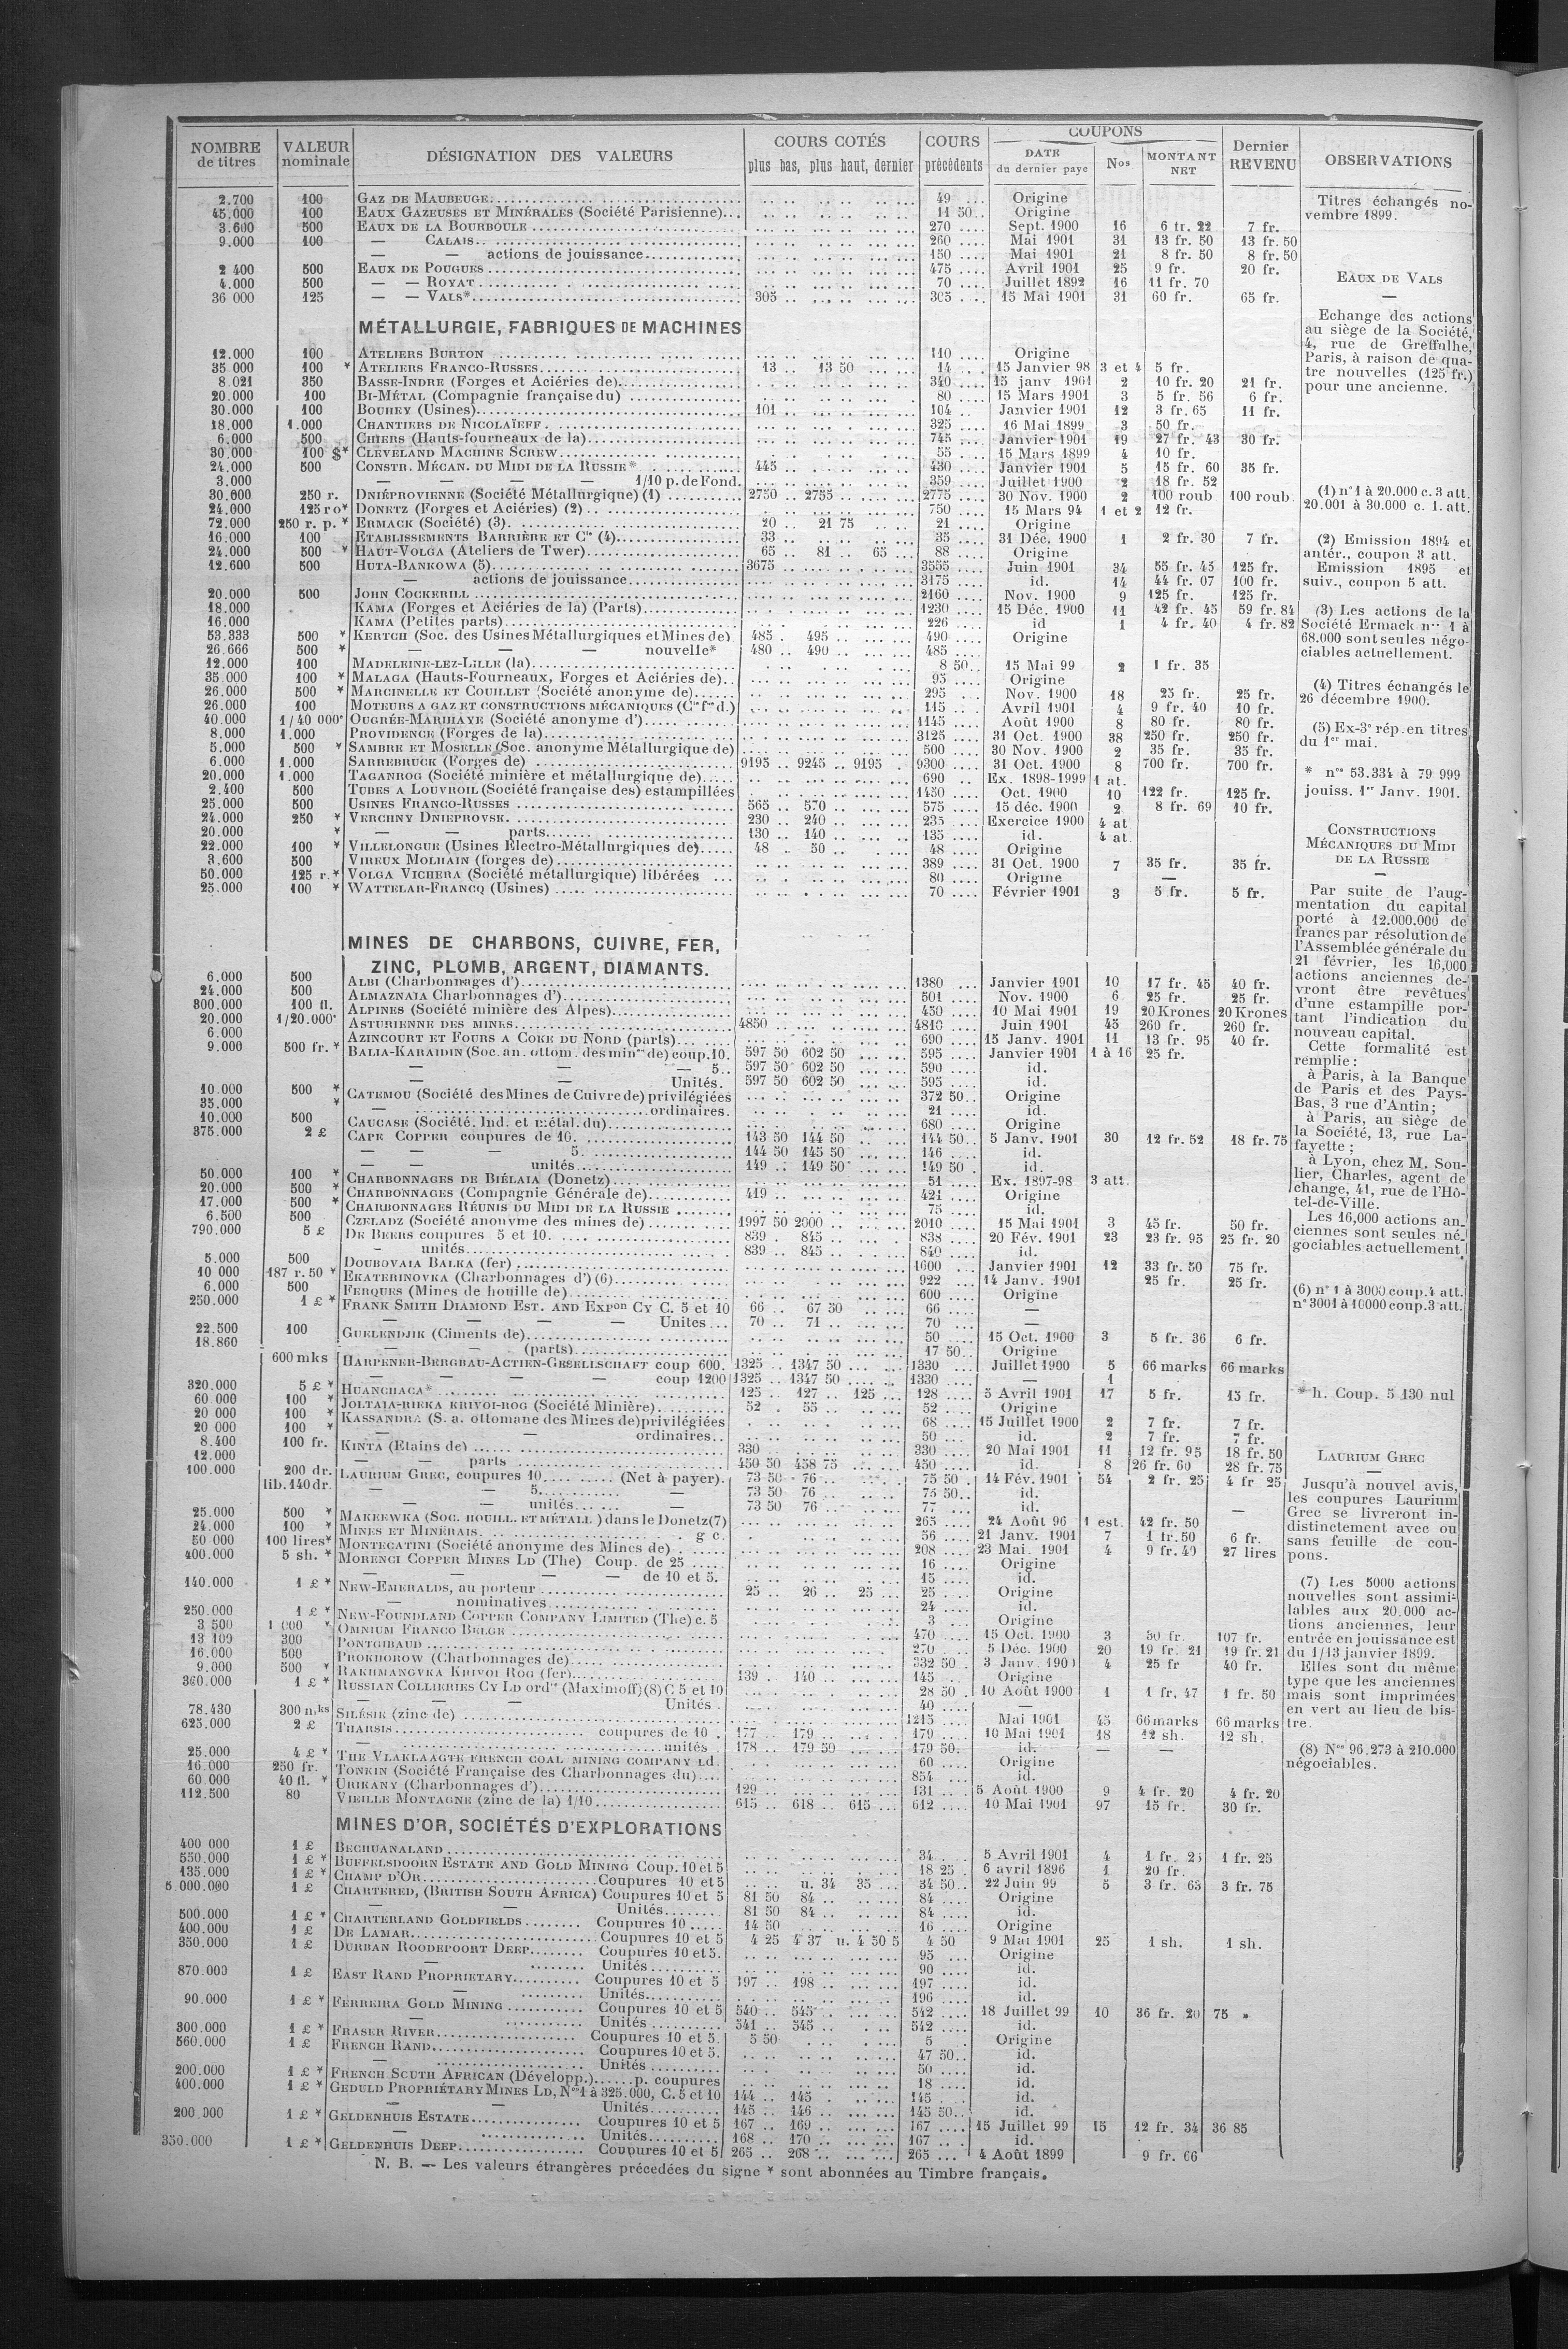 NOMBRE de titres | VALEUR nominale | DÉSIGNATION DES VALEURS | COURS COTÉS plus bas, plus haut, dernier | COURS précédents | COUPONS DATE du dernier payé | Nos | MONTANT NET | Dernier REVENU | OBSERVATIONS
2.700 | 100 | GAZ DE MAUBEUGE | 49 | Origine
45.000 | 100 | EAUX GAZEUSES ET MINÉRALES (Société Parisienne) | 11 50 | Origine
3.600 | 500 | EAUX DE LA BOURBOULE | 270 | Sept. 1900 | 16 | 6 fr. 22 | 7 fr.
9.000 | 100 | — CALAIS | 260 | Mai 1901 | 31 | 13 fr. 50 | 13 fr. 50
— — actions de jouissance | 150 | Mai 1901 | 21 | 8 fr. 50 | 8 fr. 50
2 400 | 500 | EAUX DE POUGUES | 475 | Avril 1901 | 25 | 9 fr. | 20 fr.
4.000 | 500 | — — ROYAT | 70 | Juillet 1892 | 16 | 11 fr. 70
36 000 | 125 | — — VALS* | 305 | 305 | 15 Mai 1901 | 31 | 60 fr. | 65 fr.
MÉTALLURGIE, FABRIQUES DE MACHINES
12.000 | 100 | ATELIERS BURTON | 110 | Origine
35 000 | 100 * | ATELIERS FRANCO-RUSSES | 13 .. 13 50 | 14 | 15 Janvier 98 | 3 et 4 | 5 fr.
8.021 | 350 | BASSE-INDRE (Forges et Aciéries de) | 340 | 15 janv 1901 | 2 | 10 fr. 20 | 21 fr.
20.000 | 100 | BI-MÉTAL (Compagnie française du) | 80 | 15 Mars 1901 | 3 | 5 fr. 56 | 6 fr.
30.000 | 100 | BOUHEY (Usines) | 101 | 104 | Janvier 1901 | 12 | 3 fr. 65 | 11 fr.
18.000 | 1.000 | CHANTIERS DE NICOLAÏEFF | 325 | 16 Mai 1899 | 3 | 50 fr.
6.000 | 500 | CHIERS (Hauts-fourneaux de la) | 745 | Janvier 1901 | 19 | 27 fr. 43 | 30 fr.
30.000 | 100 $* | CLEVELAND MACHINE SCREW | 55 | 15 Mars 1899 | 4 | 10 fr.
24.000 | 500 | CONSTR. MÉCAN. DU MIDI DE LA RUSSIE* | 445 | 430 | Janvier 1901 | 5 | 15 fr. 60 | 35 fr.
3.000 | — — — — 1/10 p. de Fond. | 359 | Juillet 1900 | 2 | 18 fr. 52
30.000 | 250 r. | DNIÉPROVIENNE (Société Métallurgique) (1) | 2750 .. 2755 | 2775 | 30 Nov. 1900 | 2 | 100 roub | 100 roub
24.000 | 125 ro* | DONETZ (Forges et Aciéries) (2) | 750 | 15 Mars 94 | 1 et 2 | 12 fr.
72.000 | 250 r. p. * | ERMACK (Société) (3) | 20 .. 21 75 | 21 | Origine
16.000 | 100 | ETABLISSEMENTS BARRIÈRE ET Cie (4) | 33 | 35 | 31 Déc. 1900 | 1 | 2 fr. 30 | 7 fr.
24.000 | 500 * | HAUT-VOLGA (Ateliers de Twer) | 65 .. 81 .. 65 | 88 | Origine
12.600 | 500 | HUTA-BANKOWA (5) | 3675 | 3555 | Juin 1901 | 34 | 55 fr. 45 | 125 fr.
— actions de jouissance | 3175 | id. | 14 | 44 fr. 07 | 100 fr.
20.000 | 500 | JOHN COCKERILL | 2160 | Nov. 1900 | 9 | 125 fr. | 125 fr.
18.000 | KAMA (Forges et Aciéries de la) (Parts) | 1230 | 15 Déc. 1900 | 11 | 42 fr. 45 | 59 fr. 84
16.000 | KAMA (Petites parts) | 226 | id | 1 | 4 fr. 40 | 4 fr. 82
53.333 | 500 * | KERTCH (Soc. des Usines Métallurgiques et Mines de) | 485 . 495 | 490 | Origine
26.666 | 500 * | — — — nouvelle* | 480 .. 490 | 485
12.000 | 100 | MADELEINE-LEZ-LILLE (la) | 8 50 | 15 Mai 99 | 2 | 1 fr. 35
35.000 | 100 * | MALAGA (Hauts-Fourneaux, Forges et Aciéries de) | 95 | Origine
26.000 | 500 * | MARCINELLE ET COUILLET (Société anonyme de) | 295 | Nov. 1900 | 18 | 25 fr. | 25 fr.
26.000 | 100 | MOTEURS A GAZ ET CONSTRUCTIONS MÉCANIQUES (Cie fse d.) | 115 | Avril 1901 | 4 | 9 fr. 40 | 10 fr.
40.000 | 1/40 000* | OUGRÉE-MARIHAYE (Société anonyme d') | 1145 | Août 1900 | 8 | 80 fr. | 80 fr.
8.000 | 1.000 | PROVIDENCE (Forges de la) | 3125 | 31 Oct. 1900 | 38 | 250 fr. | 250 fr.
5.000 | 500 * | SAMBRE ET MOSELLE (Soc. anonyme Métallurgique de) | 500 | 30 Nov. 1900 | 2 | 35 fr. | 35 fr.
6.000 | 1.000 | SARREBRUCK (Forges de) | 9195 .. 9245 .. 9195 | 9300 | 31 Oct. 1900 | 8 | 700 fr. | 700 fr.
20.000 | 1.000 | TAGANROG (Société minière et métallurgique de) | 690 | Ex. 1898-1999 | 1 at.
2.400 | 500 | TUBES A LOUVROIL (Société française des) estampillées | 1450 | Oct. 1900 | 10 | 122 fr. | 125 fr.
25.000 | 500 | USINES FRANCO-RUSSES | 565 .. 570 | 575 | 15 déc. 1900 | 2 | 8 fr. 69 | 10 fr.
24.000 | 250 * | VERCHNY DNIEPROVSK | 230 .. 240 | 235 | Exercice 1900 | 4 at
20.000 | * | — — parts | 130 .. 140 | 135 | id. | 4 at
22.000 | 100 * | VILLELONGUE (Usines Électro-Métallurgiques de) | 48 .. 50 | 48 | Origine
3.600 | 500 | VIREUX MOLHAIN (forges de) | 389 | 31 Oct. 1900 | 7 | 35 fr. | 35 fr.
50.000 | 125 r.* | VOLGA VICHERA (Société métallurgique) libérées | 80 | Origine | —
25.000 | 100 * | WATTELAR-FRANCQ (Usines) | 70 | Février 1901 | 3 | 5 fr. | 5 fr.
MINES DE CHARBONS, CUIVRE, FER,
ZINC, PLOMB, ARGENT, DIAMANTS.
6.000 | 500 | ALBI (Charbonnages d') | 1380 | Janvier 1901 | 10 | 17 fr. 45 | 40 fr.
24.000 | 500 | ALMAZNAÏA Charbonnages d') | 501 | Nov. 1900 | 6 | 25 fr. | 25 fr.
800.000 | 100 fl. | ALPINES (Société minière des Alpes) | 450 | 10 Mai 1901 | 19 | 20 Krones | 20 Krones
20.000 | 1/20.000* | ASTURIENNE DES MINES | 4850 | 4810 | Juin 1901 | 45 | 260 fr. | 260 fr.
6.000 | AZINCOURT ET FOURS A COKE DU NORD (parts) | 690 | 15 Janv. 1901 | 11 | 13 fr. 95 | 40 fr.
9.000 | 500 fr. * | BALIA-KARAIDIN (Soc. an. ottom. des mines de) coup. 10. | 597 50 602 50 | 595 | Janvier 1901 | 1 à 16 | 25 fr.
— — — 5 | 597 50 602 50 | 590 | id.
— — Unités. | 597 50 602 50 | 595 | id.
10.000 | 500 * | CATEMOU (Société des Mines de Cuivre de) privilégiées | 372 50 | Origine
35.000 | * | — ordinaires. | 21 | id.
10.000 | 500 | CAUCASE (Société. Ind. et métal. du) | 680 | Origine
375.000 | 2 £ | CAPE COPPER coupures de 10. | 143 50 144 50 | 144 50 | 5 Janv. 1901 | 30 | 12 fr. 52 | 18 fr. 75
— — — 5. | 144 50 145 50 | 146 | id.
— — unités | 149 .. 149 50 | 149 50 | id.
50.000 | 100 * | CHARBONNAGES DE BIÉLAIA (Donetz) | 51 | Ex. 1897-98 | 3 att.
20.000 | 500 * | CHARBONNAGES (Compagnie Générale de) | 419 | 421 | Origine
17.000 | 500 * | CHARBONNAGES RÉUNIS DU MIDI DE LA RUSSIE | 75 | id.
6.500 | 500 | CZELADZ (Société anonyme des mines de) | 1997 50 2000 | 2010 | 15 Mai 1901 | 3 | 45 fr. | 50 fr.
790.000 | 5 £ | DE BEERS coupures 5 et 10. | 839 . 845 | 838 | 20 Fév. 1901 | 23 | 23 fr. 95 | 25 fr. 20
— unités | 839 .. 845 | 840 | id.
5.000 | 500 | DOUBOVAIA BALKA (fer) | 1600 | Janvier 1901 | 12 | 33 fr. 50 | 75 fr.
10 000 | 187 r. 50 * | EKATERINOVKA (Charbonnages d') (6) | 922 | 14 Janv. 1901 | 25 fr. | 25 fr.
6.000 | 500 | FERQUES (Mines de houille de) | 600 | Origine
250.000 | 1 £ * | FRANK SMITH DIAMOND EST. AND EXPon CY C. 5 et 10 | 66 .. 67 50 | 66 | —
— — — — Unites | 70 .. 71 | 70 | —
22.500 | 100 | GUELENDJIK (Ciments de) | 50 | 15 Oct. 1900 | 3 | 5 fr. 36 | 6 fr.
18.860 | — — (parts) | 17 50 | Origine
600 mks | HARPENER-BERGBAU-ACTIEN-GESELLSCHAFT coup 600. | 1325 .. 1347 50 | 1330 | Juillet 1900 | 5 | 66 marks | 66 marks
— — — — coup 1200 | 1325 .. 1347 50 | 1330 | — | 1
320.000 | 5 £ * | HUANCHACA* | 125 .. 127 .. 125 | 128 | 5 Avril 1901 | 17 | 5 fr. | 15 fr.
60.000 | 100 * | JOLTAIA-RIEKA KRIVOI-ROG (Société Minière) | 52 . 55 | 52 | Origine
20 000 | 100 * | KASSANDRA (S. a. ottomane des Mines de) privilégiées | 68 | 15 Juillet 1900 | 2 | 7 fr. | 7 fr.
20 000 | 100 * | — — ordinaires | 50 | id. | 2 | 7 fr. | 7 fr.
8.400 | 100 fr. | KINTA (Etains de) | 330 | 330 | 20 Mai 1901 | 11 | 12 fr. 95 | 18 fr. 50
12.000 | — — parts | 450 50 458 75 | 450 | id. | 8 | 26 fr. 60 | 28 fr. 75
100.000 | 200 dr. | LAURIUM GREC, coupures 10 (Net à payer). | 73 50 76 | 75 50 | 14 Fév. 1901 | 54 | 2 fr. 25 | 4 fr 25
lib. 140 dr. | — — 5 — | 73 50 76 | 75 50 | id.
— — unités — | 73 50 76 | 77 | id. | —
25.000 | 500 * | MAKEEWKA (SOC. HOUILL. ET MÉTALL) dans le Donetz (7) | 265 | 24 Août 96 | 1 est. | 42 fr. 50
24.000 | 100 * | MINES ET MINERAIS. g c. | 56 | 21 Janv. 1901 | 7 | 1 fr. 50 | 6 fr.
50 000 | 100 lires* | MONTECATINI (Société anonyme des Mines de) | 208 | 23 Mai. 1901 | 4 | 9 fr. 40 | 27 lires
400.000 | 5 sh. * | MORENCI COPPER MINES LD (The) Coup. de 25 | 16 | Origine
— — — — de 10 et 5. | 15 | id.
140.000 | 1 £ * | NEW-EMERALDS, au porteur | 25 .. 26 .. 25 | 25 | Origine
— nominatives | 24 | id.
250.000 | 1 £ * | NEW-FOUNDLAND COPPER COMPANY LIMITED (The) c. 5 | 3 | Origine
3 500 | 1 000 * | OMNIUM FRANCO BELGE | 470 | 15 Oct. 1900 | 3 | 50 fr. | 107 fr.
13 109 | 300 | PONTGIBAUD | 270 | 5 Déc. 1900 | 20 | 19 fr. 21 | 19 fr. 21
16.000 | 500 | PROKHOROW (Charbonnages de) | 332 50 | 3 Janv. 1901 | 4 | 25 fr | 40 fr.
9.000 | 500 * | RAKHMANOVKA KRIVOI ROG (fer) | 139 . 140 | 145 | Origine
360.000 | 1 £ * | RUSSIAN COLLIERIES CY LD ordres (Maximoff) (8) C 5 et 10 | 28 50 | 10 Août 1900 | 1 | 1 fr. 47 | 1 fr. 50
— — — Unités | 40 | —
78.430 | 300 mks | SILÉSIE (zinc de) | 1215 | Mai 1901 | 45 | 66 marks | 66 marks
625.000 | 2 £ | THARSIS coupures de 10 | 177 .. 179 | 179 | 10 Mai 1901 | 18 | 12 sh. | 12 sh.
— unités | 178 .. 179 50 | 179 50 | id. | — | —
25.000 | 4 £ * | THE VLAKLAAGTE FRENCH COAL MINING COMPANY Ld. | 60 | Origine
16.000 | 250 fr. | TONKIN (Société Française des Charbonnages du) | 854 | id.
60.000 | 40 fl. * | URIKANY (Charbonnages d') | 129 | 131 | 5 Août 1900 | 9 | 4 fr. 20 | 4 fr. 20
112.500 | 80 | VIEILLE MONTAGNE (zinc de la) 1/10 | 615 .. 618 .. 615 | 612 | 10 Mai 1901 | 97 | 15 fr. | 30 fr.
MINES D'OR, SOCIÉTÉS D'EXPLORATIONS
400 000 | 1 £ | BECHUANALAND | 34 | 5 Avril 1901 | 4 | 1 fr. 25 | 1 fr. 25
550.000 | 1 £ * | BUFFELSDOORN ESTATE AND GOLD MINING Coup. 10 et 5 | 18 25 | 6 avril 1896 | 1 | 20 fr.
135.000 | 1 £ * | CHAMP D'OR Coupures 10 et 5 | u. 34 35 | 34 50 | 22 Juin 99 | 5 | 3 fr. 65 | 3 fr. 75
5.000.000 | 1 £ | CHARTERED, (BRITISH SOUTH AFRICA) Coupures 10 et 5 | 81 50 84 | 84 | Origine
— — Unités | 81 50 84 | 84 | id.
500.000 | 1 £ * | CHARTERLAND GOLDFIELDS Coupures 10 | 14 50 | 16 | Origine
400.000 | 1 £ | DE LAMAR Coupures 10 et 5 | 4 25 4 37 u. 4 50 5 | 4 50 | 9 Mai 1901 | 25 | 1 sh. | 1 sh.
350.000 | 1 £ | DURBAN ROODEPOORT DEEP Coupures 10 et 5. | 95 | Origine
— Unités | 90 | id.
870.000 | 1 £ | EAST RAND PROPRIETARY Coupures 10 et 5 | 197 .. 198 | 197 | id.
— Unités | 196 | id.
90.000 | 1 £ * | FERREIRA GOLD MINING Coupures 10 et 5 | 540 .. 545 | 542 | 18 Juillet 99 | 10 | 36 fr. 20 | 75 »
— Unités | 541 .. 545 | 542 | id.
300.000 | 1 £ * | FRASER RIVER Coupures 10 et 5. | 5 50 | 5 | Origine
560.000 | 1 £ | FRENCH RAND Coupures 10 et 5. | 47 50 | id.
— Unités | 50 | id.
200.000 | 1 £ * | FRENCH SOUTH AFRICAN (Développ.) p. coupures | 18 | id.
400.000 | 1 £ * | GEDULD PROPRIÉTARY MINES LD, Nos 1 à 325.000, C. 5 et 10 | 144 .. 145 | 145 | id.
— — Unités | 145 .. 146 | 145 50 | id.
200.000 | 1 £ * | GELDENHUIS ESTATE Coupures 10 et 5 | 167 .. 169 | 167 | 15 Juillet 99 | 15 | 12 fr. 34 | 36 85
— Unités | 168 .. 170 | 167 | id.
350.000 | 1 £ * | GELDENHUIS DEEP Coupures 10 et 5 | 265 .. 268 | 265 | 4 Août 1899 | 9 fr. 66
N. B. — Les valeurs étrangères précedées du signe * sont abonnées au Timbre français.
Titres échangés no-
vembre 1899.
EAUX DE VALS
—
Echange des actions
au siège de la Société,
4, rue de Greffulhe,
Paris, à raison de qua-
tre nouvelles (125 fr.)
pour une ancienne.
(1) n° 1 à 20.000 c. 3 att.
20.001 à 30.000 c. 1. att.
(2) Emission 1894 et
antér., coupon 3 att.
Emission 1895 et
suiv., coupon 5 att.
(3) Les actions de la
Société Ermack nos 1 à
68.000 sont seules négo-
ciables actuellement.
(4) Titres échangés le
26 décembre 1900.
(5) Ex-3e rép. en titres
du 1er mai.
* nos 53.334 à 79 999
jouiss. 1er Janv. 1901.
CONSTRUCTIONS
MÉCANIQUES DU MIDI
DE LA RUSSIE
—
Par suite de l'aug-
mentation du capital
porté à 12.000.000 de
francs par résolution de
l'Assemblée générale du
21 février, les 16,000
actions anciennes de-
vront être revêtues
d'une estampille por-
tant l'indication du
nouveau capital.
Cette formalité est
remplie :
à Paris, à la Banque
de Paris et des Pays-
Bas, 3 rue d'Antin;
à Paris, au siège de
la Société, 13, rue La-
fayette ;
à Lyon, chez M. Sou-
lier, Charles, agent de
change, 41, rue de l'Hô-
tel-de-Ville.
Les 16,000 actions an-
ciennes sont seules né-
gociables actuellement
(6) n° 1 à 3000 coup. 4 att.
n° 3001 à 10000 coup. 3 att.
* h. Coup. 5 130 nul
LAURIUM GREC
—
Jusqu'à nouvel avis,
les coupures Laurium
Grec se livreront in-
distinctement avec ou
sans feuille de cou-
pons.
(7) Les 5000 actions
nouvelles sont assimi-
lables aux 20.000 ac-
tions anciennes, leur
entrée en jouissance est
du 1/13 janvier 1899.
Elles sont du même
type que les anciennes
mais sont imprimées
en vert au lieu de bis-
tre.
(8) Nos 96.273 à 210.000
négociables.